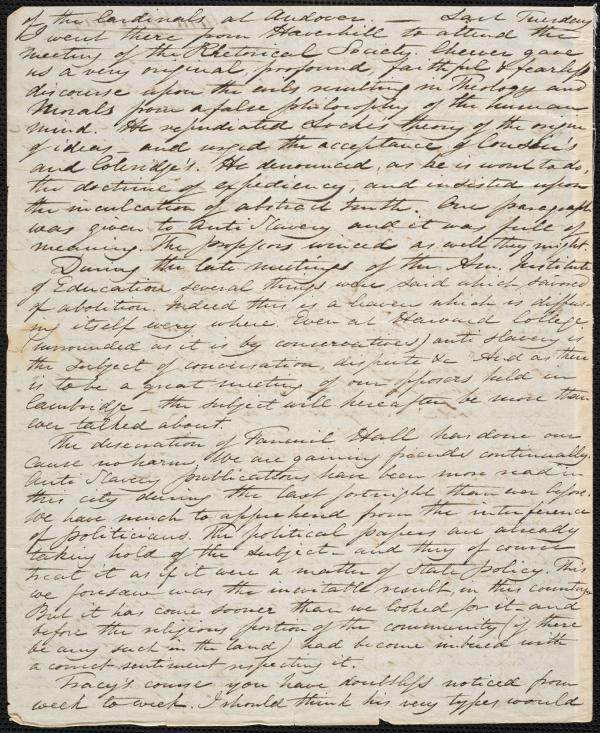 of the Cardinals at Andover. — Last Tuesday
I went there from Haverhill to attend the
meeting of the Rhetorical Society. Cheever gave
us a very original, profound, faithful & fearless
discourse upon the evils resulting in Theology and
Morals from a false philosophy of the human
mind. He repudiated Locke's theory of the origin
of ideas – and urged the acceptance of Cousin's
and Coleridge's. He denounced, as he is wont to do,
the doctrine of expediency, and insisted upon
the inculcation of abstract truth. One paragraph
was given to Anti Slavery and it was full of
meaning. The professors winced as well they might.
During the late meetings of the Am. Institute
of Education several things were said which savored
of abolition. Indeed this is a leaven which is diffus-
ing itself every where. Even at Harvard College
(surrounded as it is by conservatives) anti slavery is
the subject of conversation, dispute &c. And as there
is to be a great meeting of our opposers held in
Cambridge – the subject will hereafter be more than
ever talked about.
The desecration of Faneuil Hall has done our
cause no harm. We are gaining friends continually.
Anti Slavery publications have been more read in
this city during the last fortnight than ever before.
We have much to apprehend from the interference
of politicians. The political papers are already
taking hold of the subject – and they of course
treat it as if it were a matter of State policy. This
we foresaw was the inevitable result, in this country.
But it has come sooner than we looked for it – and
before the religious portion of the community (if there
be any such in the land) had become imbued with
a correct sentiment respecting it.
Tracy's course you have doubtless noticed from
week to week. I should think his very types would